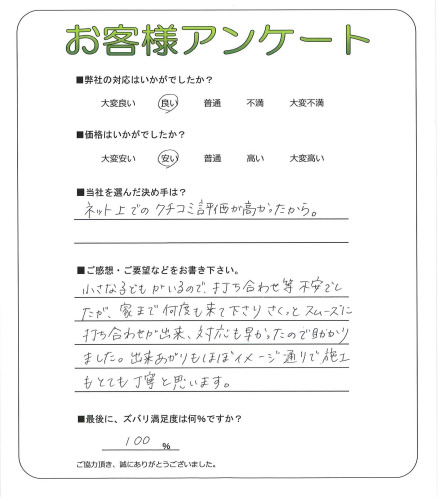 お客様アンケート
■弊社の対応はいかがでしたか？
大変良い 良い 普通 不満 大変不満
■価格はいかがでしたか？
大変安い 安い 普通 高い 大変高い
■当社を選んだ決め手は？
ネット上でのクチコミ評価が高かったから。
■ご感想・ご要望などをお書き下さい。
小さな子どもがいるので、打ち合わせ等不安でし
たが、家まで何度も来て下さり さくっとスムーズに
打ち合わせが出来、対応も早かったので助かり
ました。出来あがりもほぼイメージ通りで施工
もとても丁寧と思います。
■最後に、ズバリ満足度は何％ですか？
100 %
ご協力頂き、誠にありがとうございました。